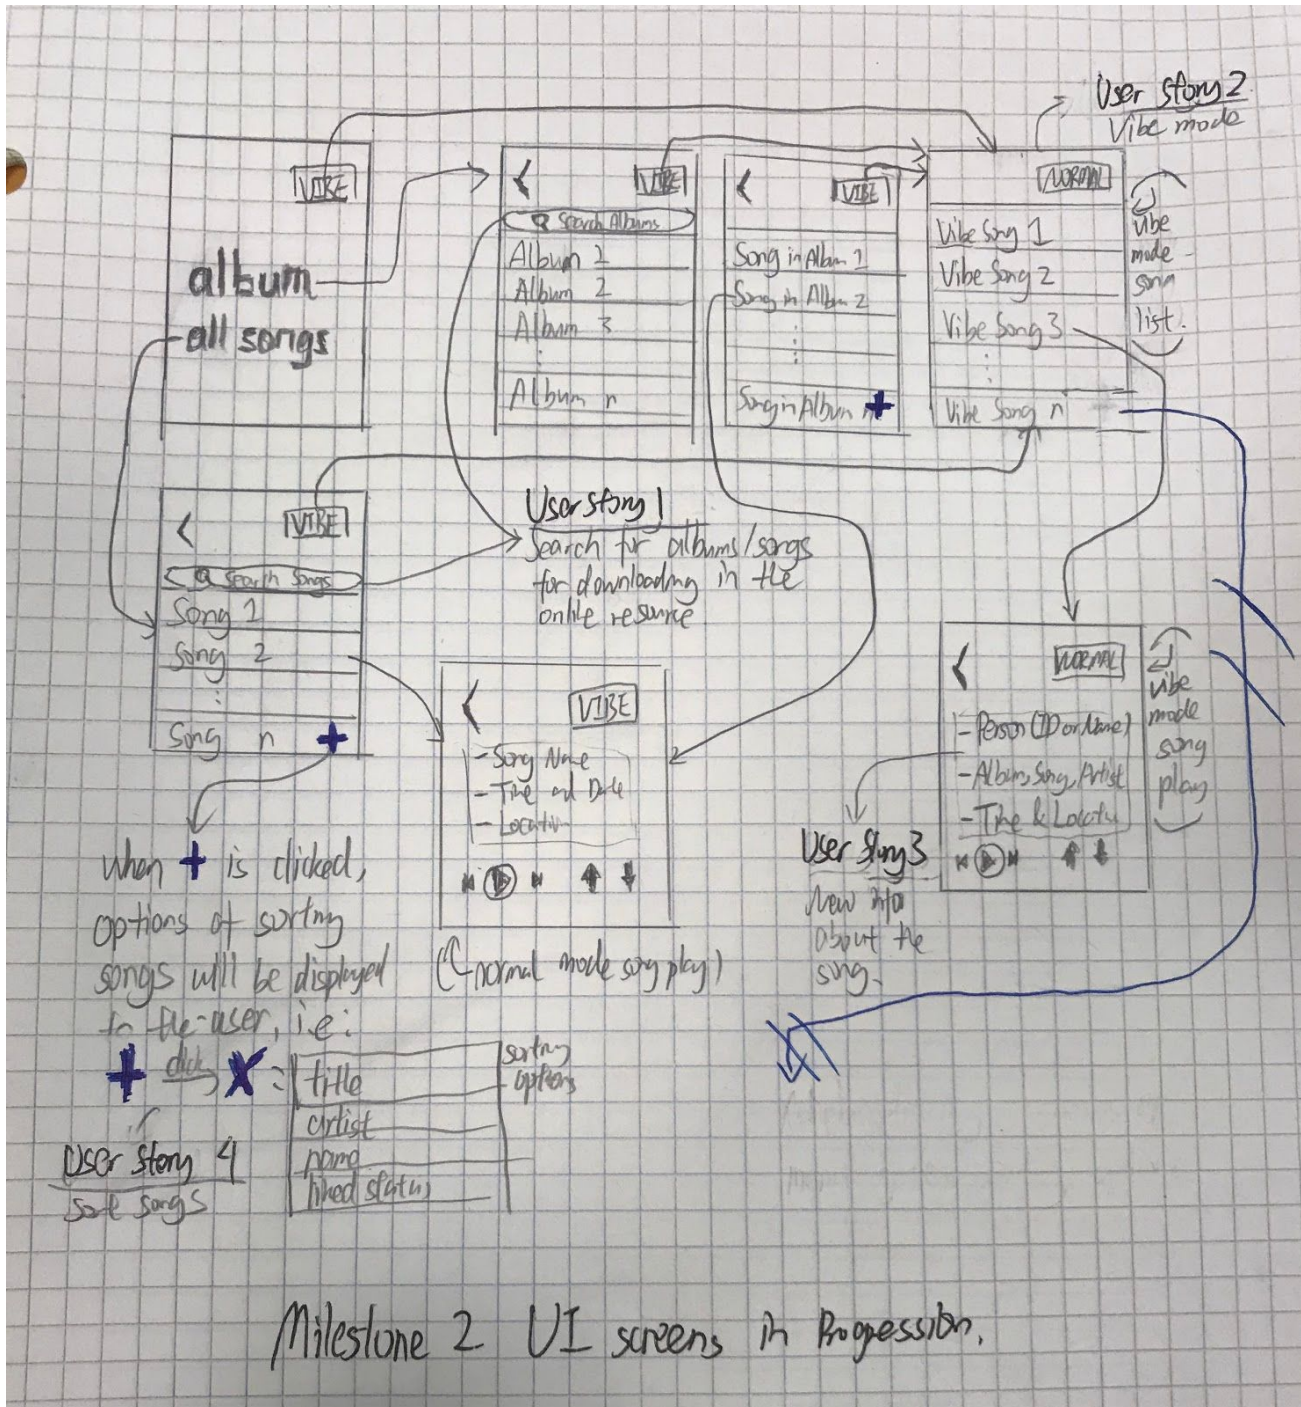 User Story 2
Vibe mode
VIBE
album
all songs
VIBE
Search Albums
Album 1
Album 2
Album 3
Album n
VIBE
Song in Album 1
Song in Album 2
Song in Album n
NORMAL
Vibe Song 1
Vibe Song 2
Vibe Song 3
Vibe Song n
vibe
mode
song
list.
VIBE
Search Songs
Song 1
Song 2
Song n
User Story 1
Search for albums/songs
for downloading in the
online resource
VIBE
- Song Name
- Time and Date
- Location
(normal mode song play)
NORMAL
- Person (ID or Name)
- Album, Song, Artist
- Time & Locatn
vibe
mode
song
play
User Story 3
New info
about the
song.
When + is clicked,
options of sorting
songs will be displayed
to the user, i.e:
+ click → X =
title
artist
name
liked status
sorting
options
User Story 4
Sort songs
Milestone 2 UI screens in Progession.